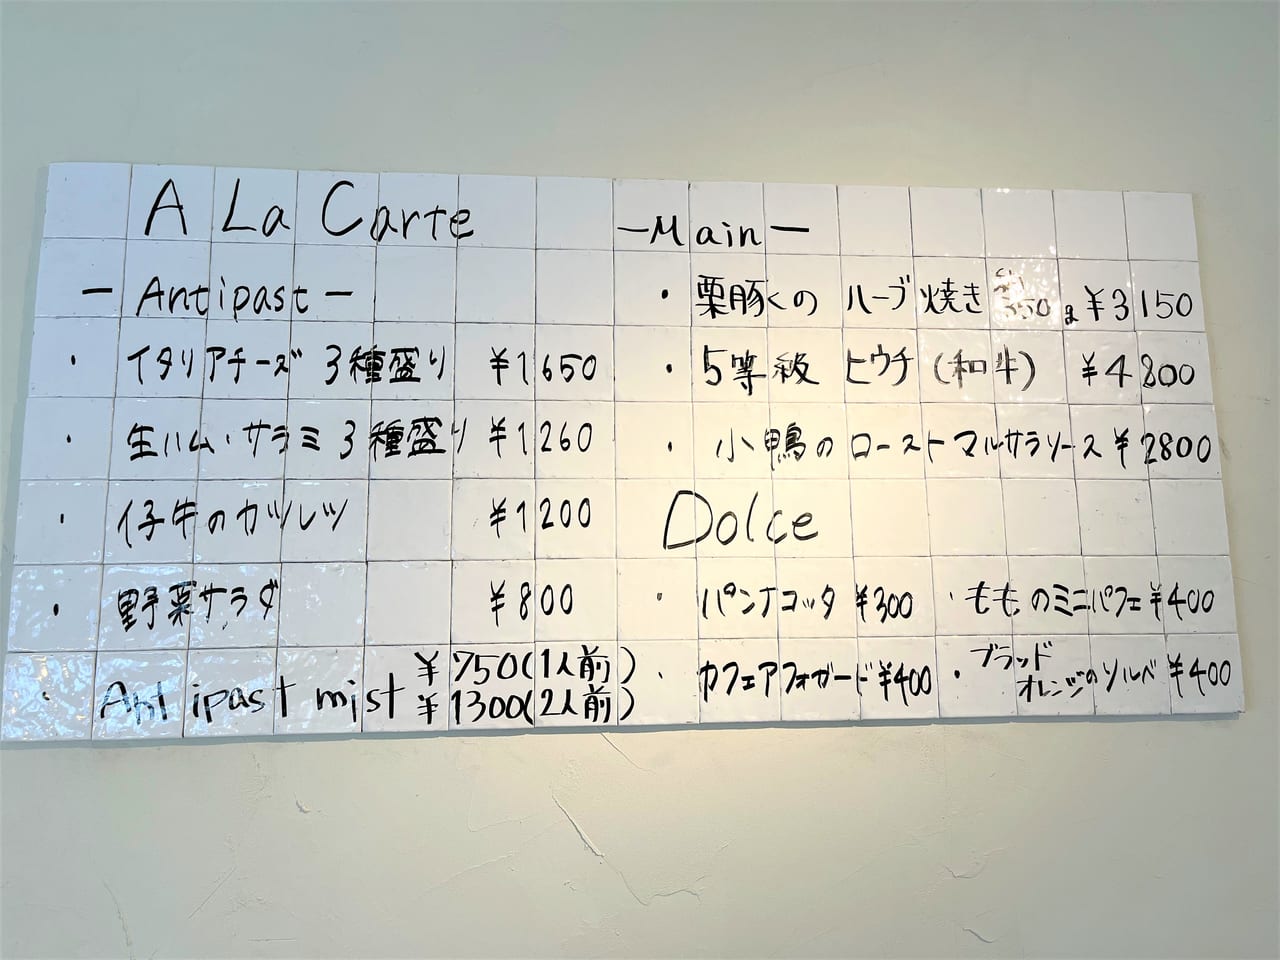 A La Carte
- Antipast -
・イタリアチーズ 3種盛り ¥1650
・生ハム・サラミ 3種盛り ¥1260
・仔牛のカツレツ ¥1200
・野菜サラダ ¥800
・Antipast mist ¥750(1人前)
¥1300(2人前)
-Main-
・栗豚くの ハーブ焼き 約350g ¥3150
・5等級 ヒウチ (和牛) ¥4800
・小鴨のロースト マルサラソース ¥2800
Dolce
・パンナコッタ ¥300
・もものミニパフェ ¥400
・カフェアフォガード ¥400
・ブラッド
オレンジのソルベ ¥400